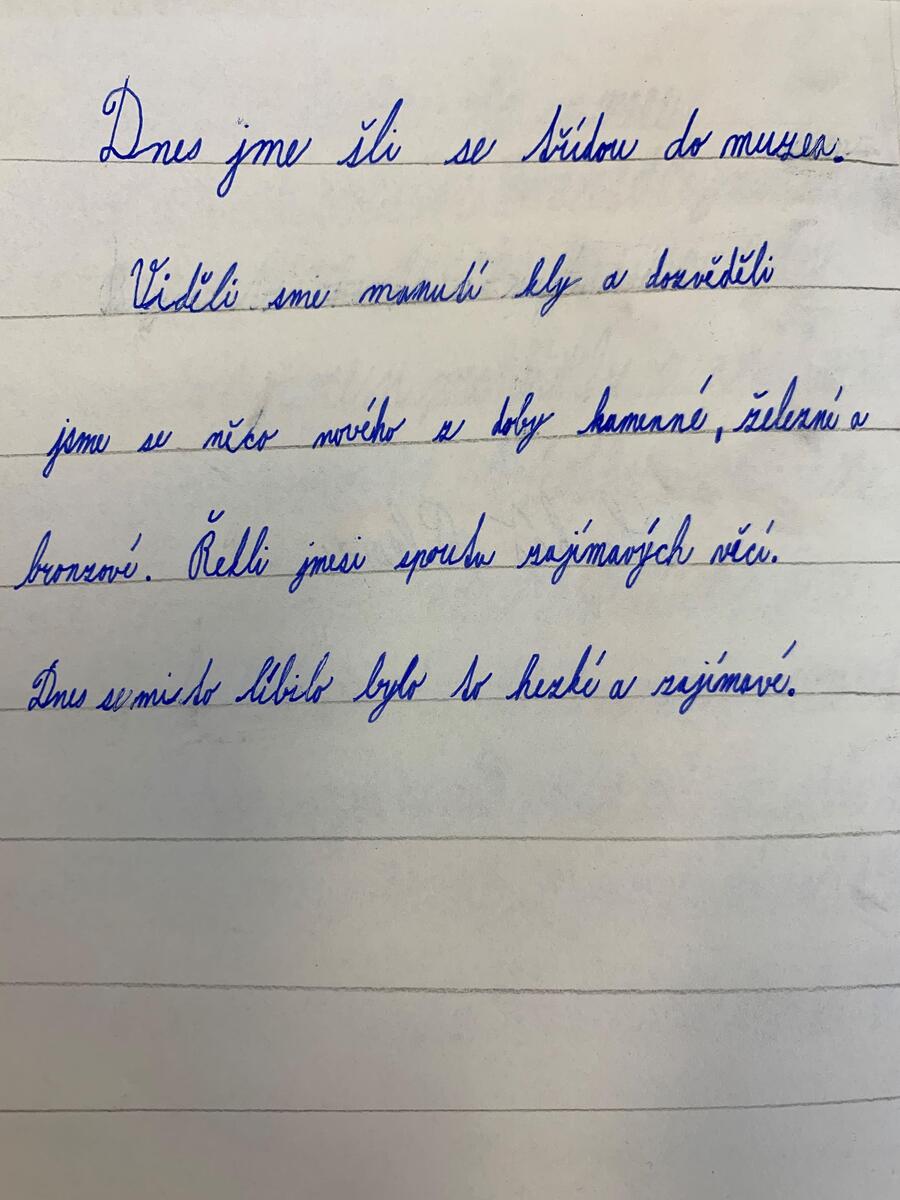 Dnes jme šli se třídou do muzea.
Viděli sme mamutí kly a dozvěděli
jsme se něco nového z doby kamenné, železné a
bronzové. Řekli jmesi spoutu zajímavých věcí.
Dnes se mi to líbilo bylo to hezké a zajímavé.